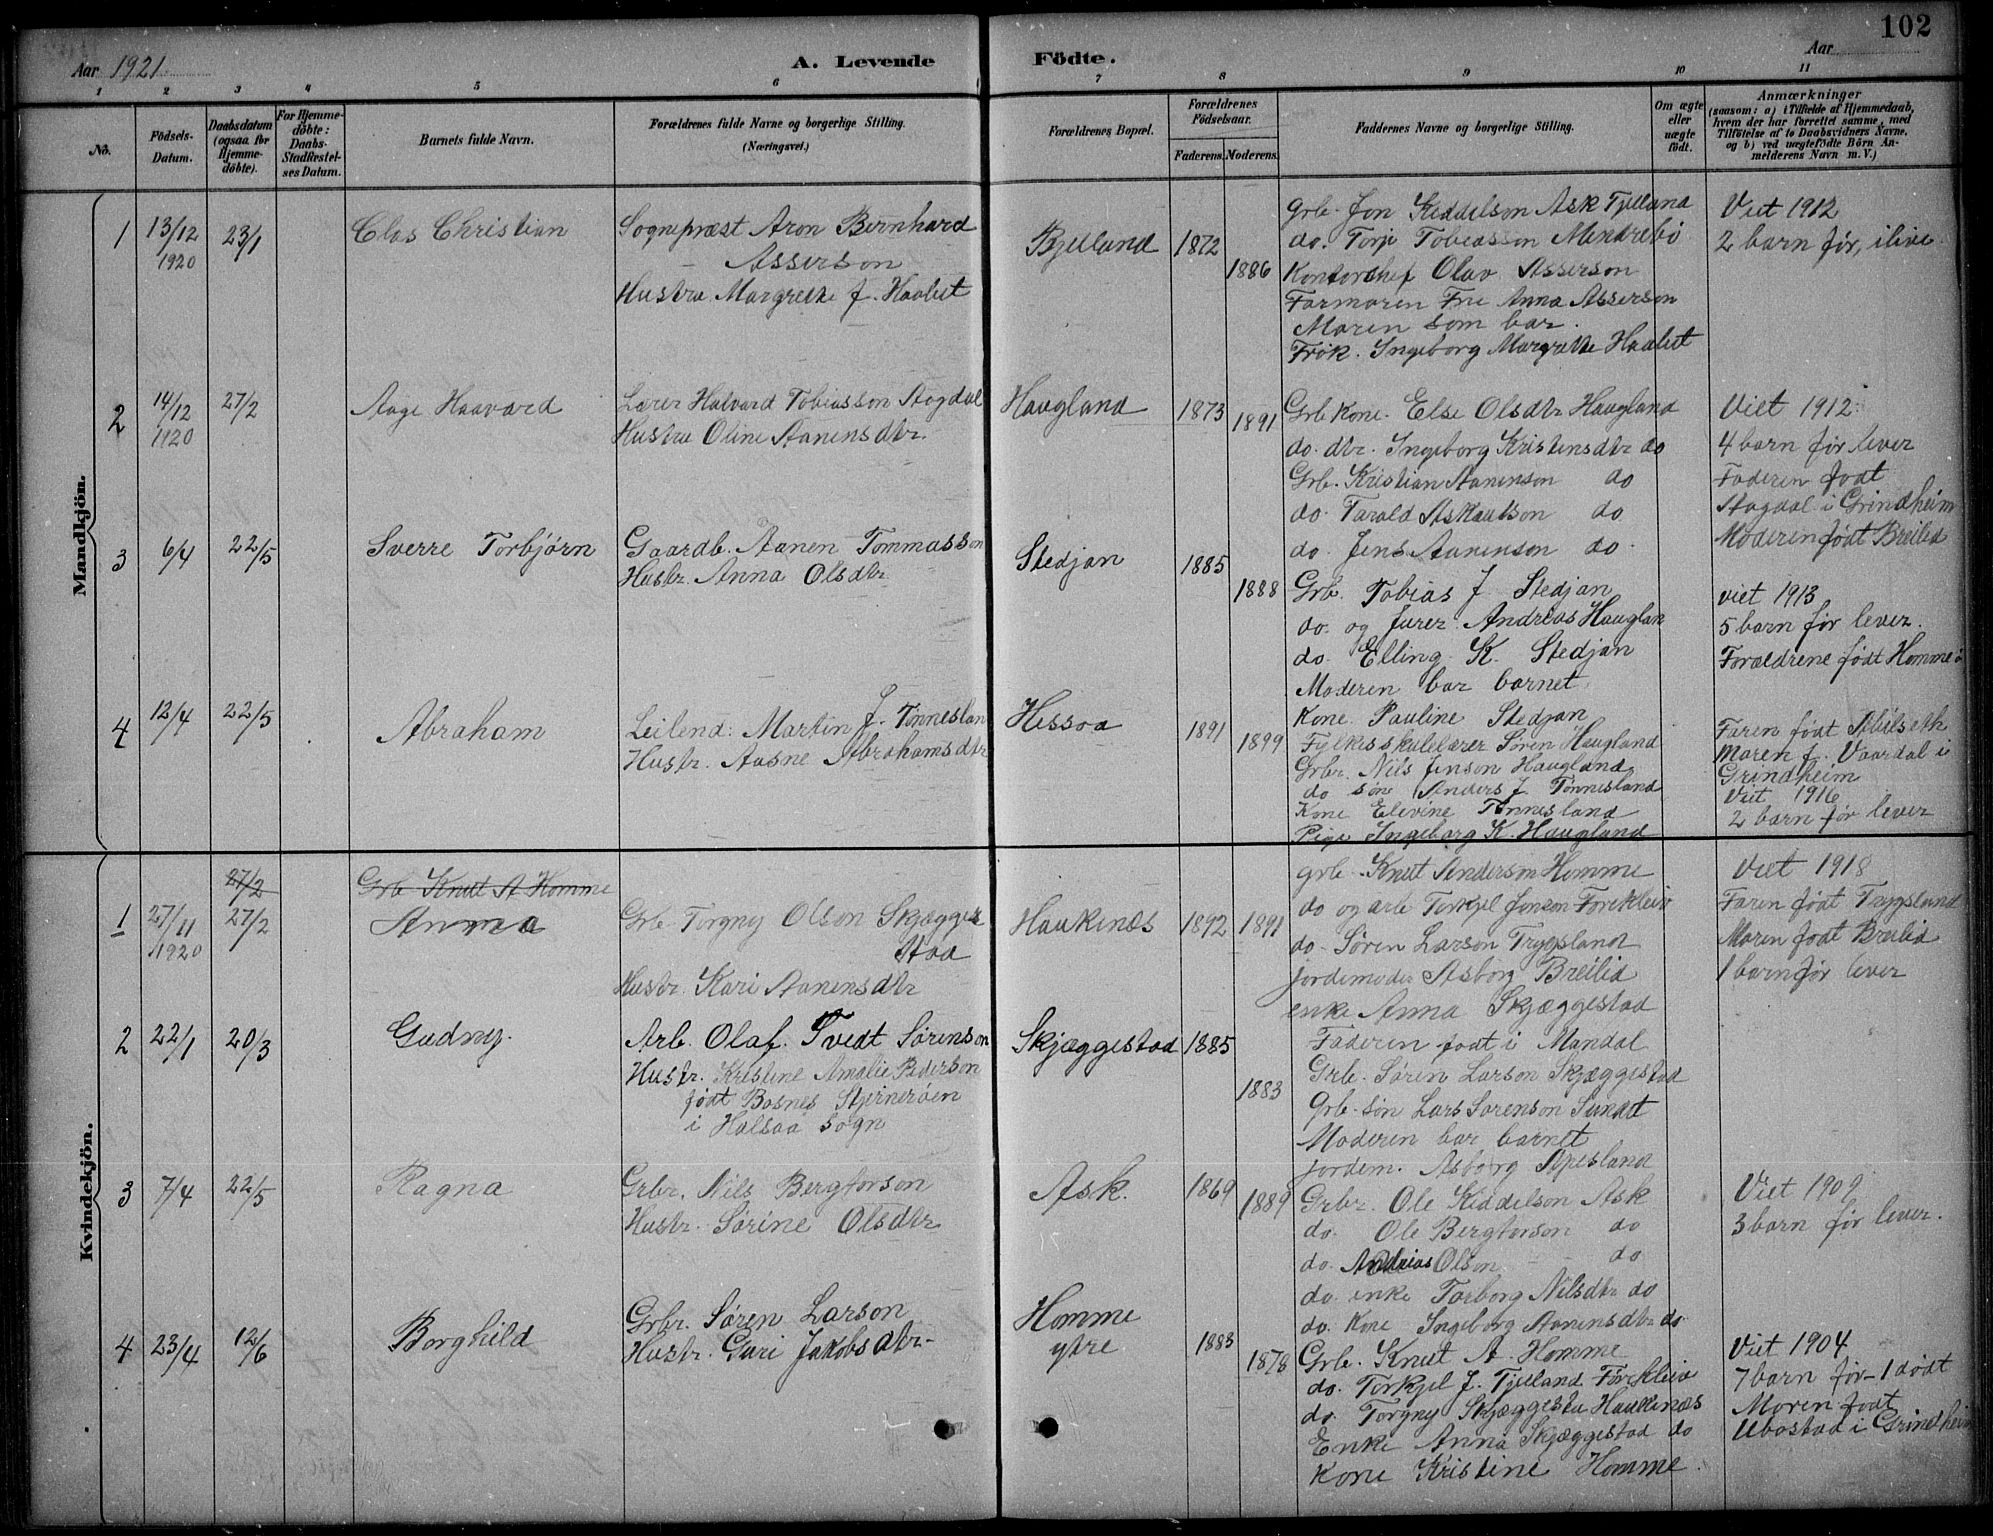 102
Aar 1921
A. Levende Födte.
Aar
1 2 3 4 5 6 7 8 9 10 11
No.
Födsels-
Datum.
Daabsdatum
(ogsaa for
Hjemme-
döbte).
For Hjemme-
döbte:
Daabs-
Stadfæstel-
ses Datum.
Barnets fulde Navn.
Forældrenes fulde Navne og borgerlige Stilling.
(Næringsvei.)
Forældrenes Bopæl.
Forældrenes
Födselsaar.
Faderens. Moderens.
Faddernes Navne og borgerlige Stilling.
Om ægte
eller
uægte
födt.
Anmærkninger
(saasom: a) i Tilfælde af Hjemmedaab,
hvem der har forrettet samme, med
Tilföielse af to Daabsvidners Navne,
og b) ved uægtefödte Börn An-
melderens Navn m. V.)
Mandkjön.
1
13/12
1920
23/1
Clas Christian
Sognepræst Aron Bernhard
Asserson
Hustru Margrethe f. Haalist
Bjelland
1872
1886
Grb. Jon Keddelson Ask Tjelland
do. Torje Tobiasson Mandrebø
Kontorchef Olav Asserson
Farmoren Fru Anna Asserson
Moren som bar.
Frøk. Ingeborg Margrethe Haalist
Viet 1912
2 barn før, ilive
2
14/12
1920
27/2
Aage Haavard
Lærer Halvard Tobiasson Stogdal
Hustru Oline Aanensdtr.
Haugland
1873
1891
Grb Kone. Else Olsdtr Haugland
do. dtr. Ingeborg Kristensdtr do
Grb. Kristian Aanenson do
do. Tarald Askautson do
do. Jens Aanenson do.
Viet 1912
4 barn før lever
Faderen født
Stogdal i Grindheim
Moderen født Breilid
3
6/4
22/5
Sverre Torbjørn
Gaardb. Aanen Tommasson
Hustr. Anna Olsdtr
Stedjan
1885
1888
Grb. Tobias J. Stedjan
do. og furer Andreas Hauglan
do. Elling K. Stedjan
Moderen bar barnet
Kone Pauline Stedjan
viet 1913
5 barn før lever.
Forældrene født Homme
4
12/4
22/5
Abraham
Leilend: Martin J. Tønneslan
Hustr. Aasne Abrahamsdtr
Hessaa
1891
1899
Fylkesskulelærer Søren Haugland
Grbr. Nils Jenson Haugland
do søn Anders J Tønnesland
Kone Elevine Tønnesland
Pige Ingeborg K. Haugland
Faren født
Moren f. Vaardal i
Grindheim
Viet 1916
2 barn før lever
Kvindekjön.
27/2
Grb Knut A Homme
1
27/11
1920
27/2
Anna
Grb. Torgny Olson Skjægges
stad
Hustr. Kari Aanensdtr
Haukenæs
1892
1891
grb. Knut Anderson Homme
do og arb Torkjel Jonson Foreklev
do. Søren Larson Trygsland
jordemoder Asborg Breilid
enke Anna Skjæggestad
Viet 1918
Faren født Trygsland
Moren født Breilid
1 barn før lever
2
22/1
20/3
Gudny.
Arb. Olaf. Tvedt Sørenson
Hustr. Kristine Amalie Pederson
født Bosnes Stjernerøen
i Halsaa Sogn
Skjæggestad
1885
1883
Faderen født i Mandal
Grb. Søren Larson Skjæggestad
Grb. søn Lars Sørenson Sundt
Moderen bar barnet
Jordem. Asborg Apesland
3
7/4
22/5
Ragna
Grbr. Nils Bergtorson
Hustr. Sørine Olsdtr
Ask.
1869
1889
Grbr. Ole Kiddelson Ask
do. Ole Bergtorson do
do. Andreas Olson do
do. enke Torborg Nilsdtr do
do. Kone Ingeborg Aanensdtr do
Viet 1909
3 barn før lever.
4
23/4
12/6
Borghild
Grbr. Søren Larson
Hustr. Guri Jakobsdtr
Homme
ytre
1883
1878
Grb. Knut A. Homme
do. Torkjel J. Tjelland Foreklev
do. Torgny Skjæggesta Haukenæs
Enke Anna Skjæggestad do
Kone Kristine Homme.
Viet 1904
7 barn før - 1 dødt
Moren født
Ubostad i Grindheim